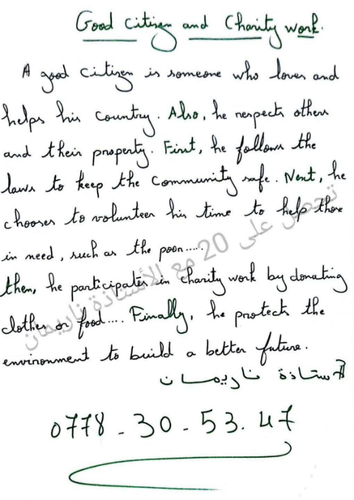 Good citizen and Charity work.
A good citizen is someone who loves and
helps his country. Also, he respects others
and their property. First, he follows the
laws to keep the community safe. Next, he
chooses to volunteer his time to help those
in need, such as the poor.....
then, he participates in charity work by donating
clothes or food.... Finally, he protect the
environment to build a better future.
تحصل على 20 مع الأستاذة ناريمان
الأستاذة ناريمان
0778-30-53.47